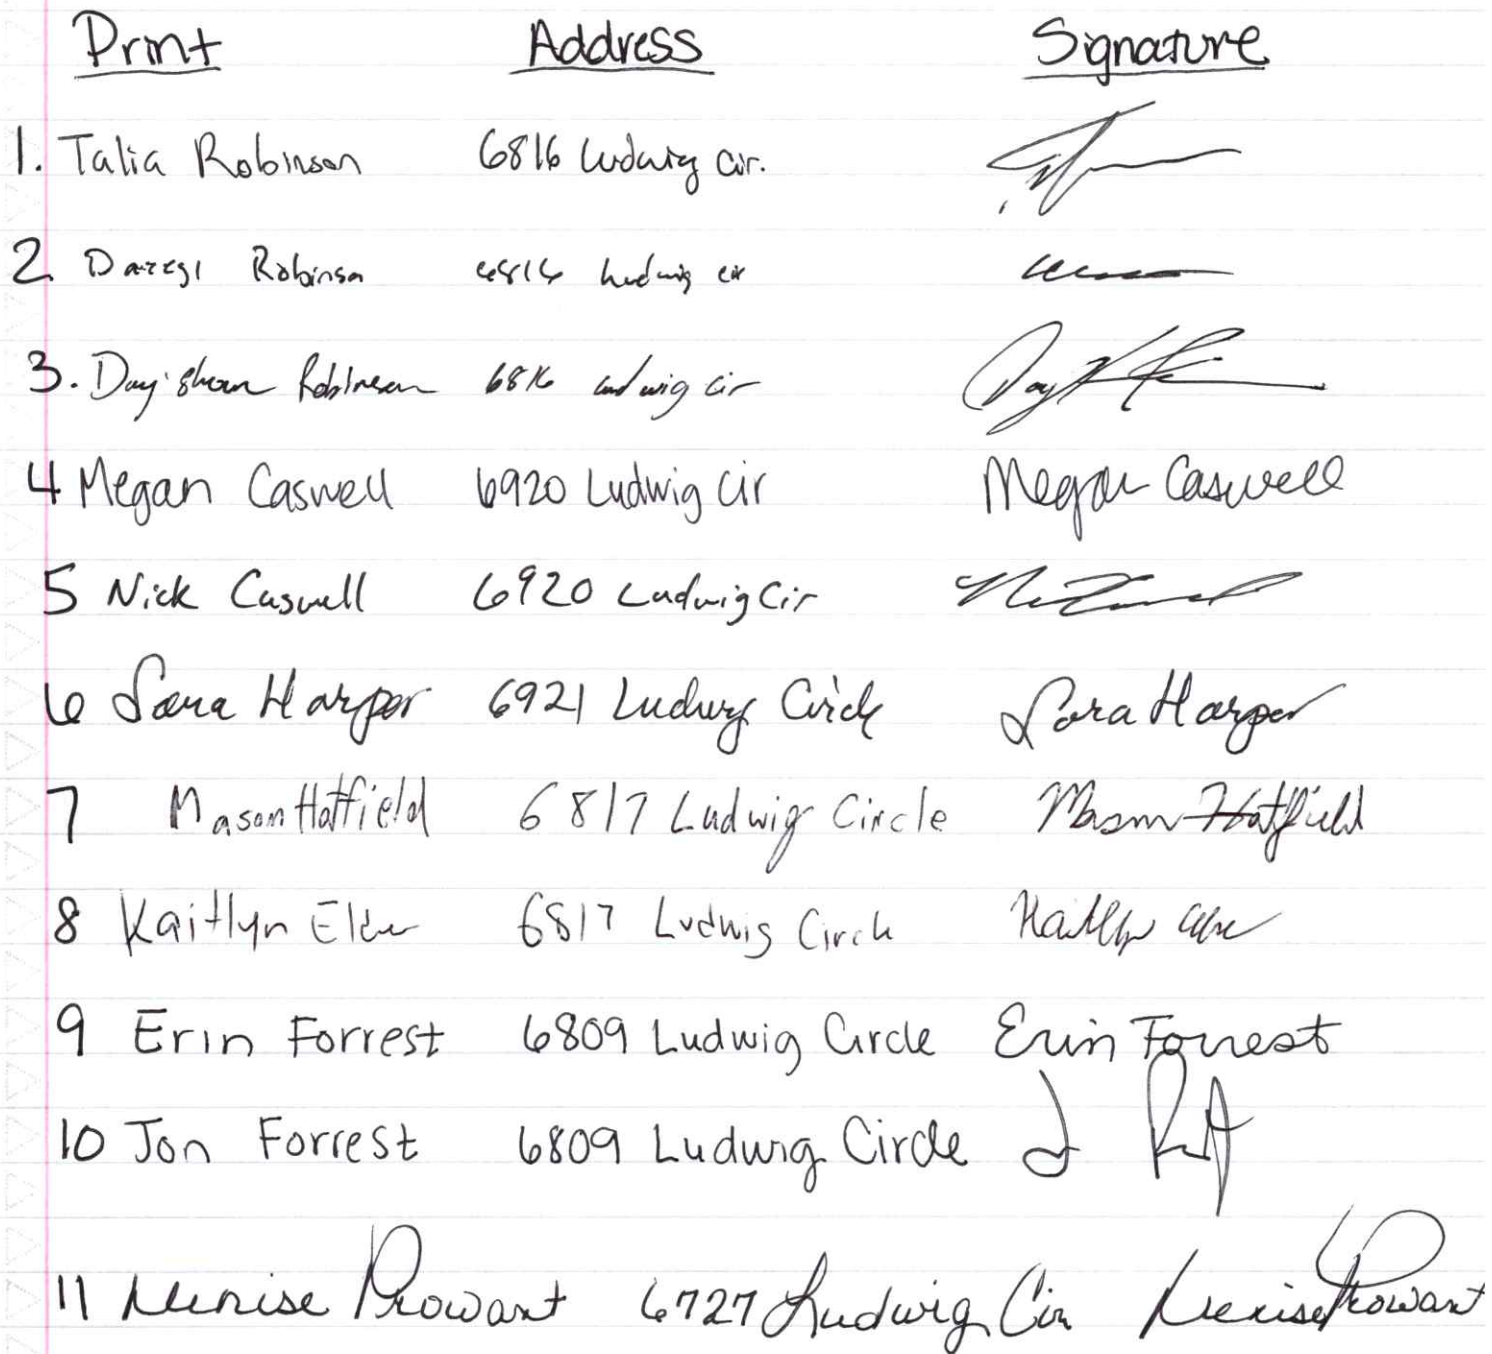 Print Address Signature
1. Talia Robinson 6816 Ludwig Cir.
2 Robinson 6816 Ludwig cir
3. Day'shawn Robinson 6816 Ludwig cir
4 Megan Caswell 6920 Ludwig Cir Megan Caswell
5 Nick Caswell 6920 Ludwig Cir
6 Sara Harper 6921 Ludwig Circle Sara Harper
7 Mason Hatfield 6817 Ludwig Circle Mason Hatfield
8 Kaitlyn 6817 Ludwig Circle Kaitlyn
9 Erin Forrest 6809 Ludwig Circle Erin Forrest
10 Jon Forrest 6809 Ludwig Circle
11 Denise Prowant 6727 Ludwig Cir Denise Prowant